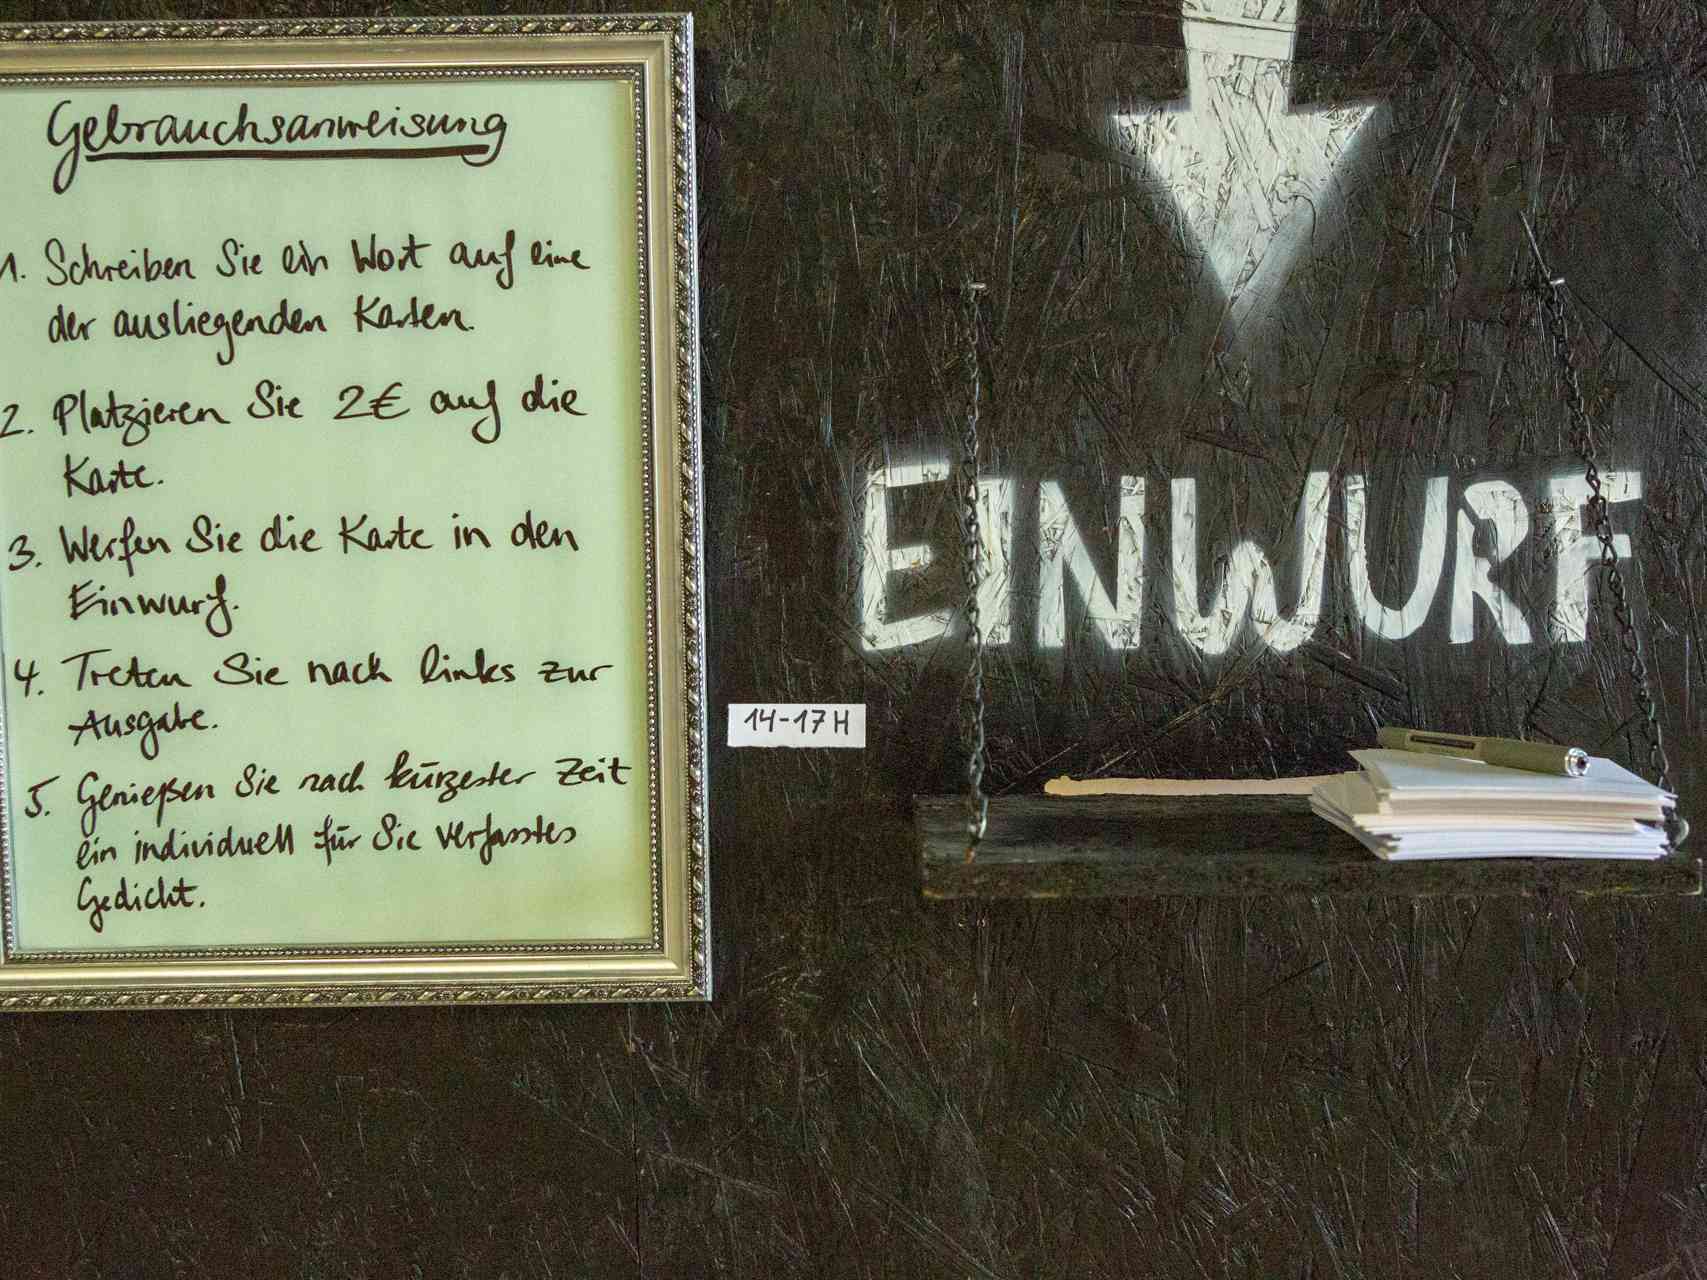 Gebrauchsanweisung
1. Schreiben Sie ein Wort auf eine
der ausliegenden Karten.
2. Platzieren Sie 2€ auf die
Karte.
3. Werfen Sie die Karte in den
Einwurf.
4. Treten Sie nach links zur
Ausgabe.
5. Genießen Sie nach kürzester Zeit
ein individuell für Sie verfasstes
Gedicht.
14-17H
EINWURF